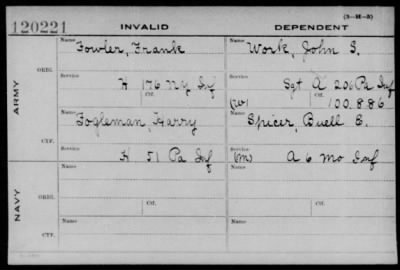 (3-H-3)
120221 INVALID DEPENDENT
Name Fowler, Frank Name Work, John S.
ORIG.
Service H 176 NY Inf Service Sgt A 206 Pa Inf
Ctf. Ctf.
(W) 100.886
ARMY
Name Fogleman, Harry Name Spicer, Buell E.
CTF.
Service H 51 Pa Inf Service (m) A 6 Mo Inf
Name Name
NAVY
ORIG.
Service Ctf. Service Ctf.
Name Name
CTF.